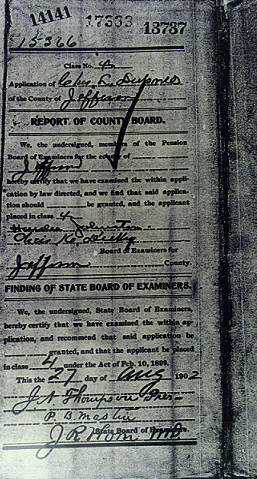 14141 17333 13737
15366
Class No. 4
Application of Chas. E.
of the County of Jefferson
REPORT OF COUNTY BOARD.
We, the undersigned, members of the Pension
Board of Examiners for the county of
Jefferson
hereby certify that we have examined the within appli-
cation by law directed, and we find that said applica-
tion should be granted, and the applicant
placed in class 4
Board of Examiners for
Jefferson County.
FINDING OF STATE BOARD OF EXAMINERS.
We, the undersigned, State Board of Examiners,
hereby certify that we have examined the within ap-
plication, and recommend that said application be
granted, and that the applicant be placed
in class 4 under the Act of Feb. 10, 1899.
This the 27 day of Aug 1902
J. N. Thompson Pres
P. B. Mastin
J. R. MD
State Board of Examiners.